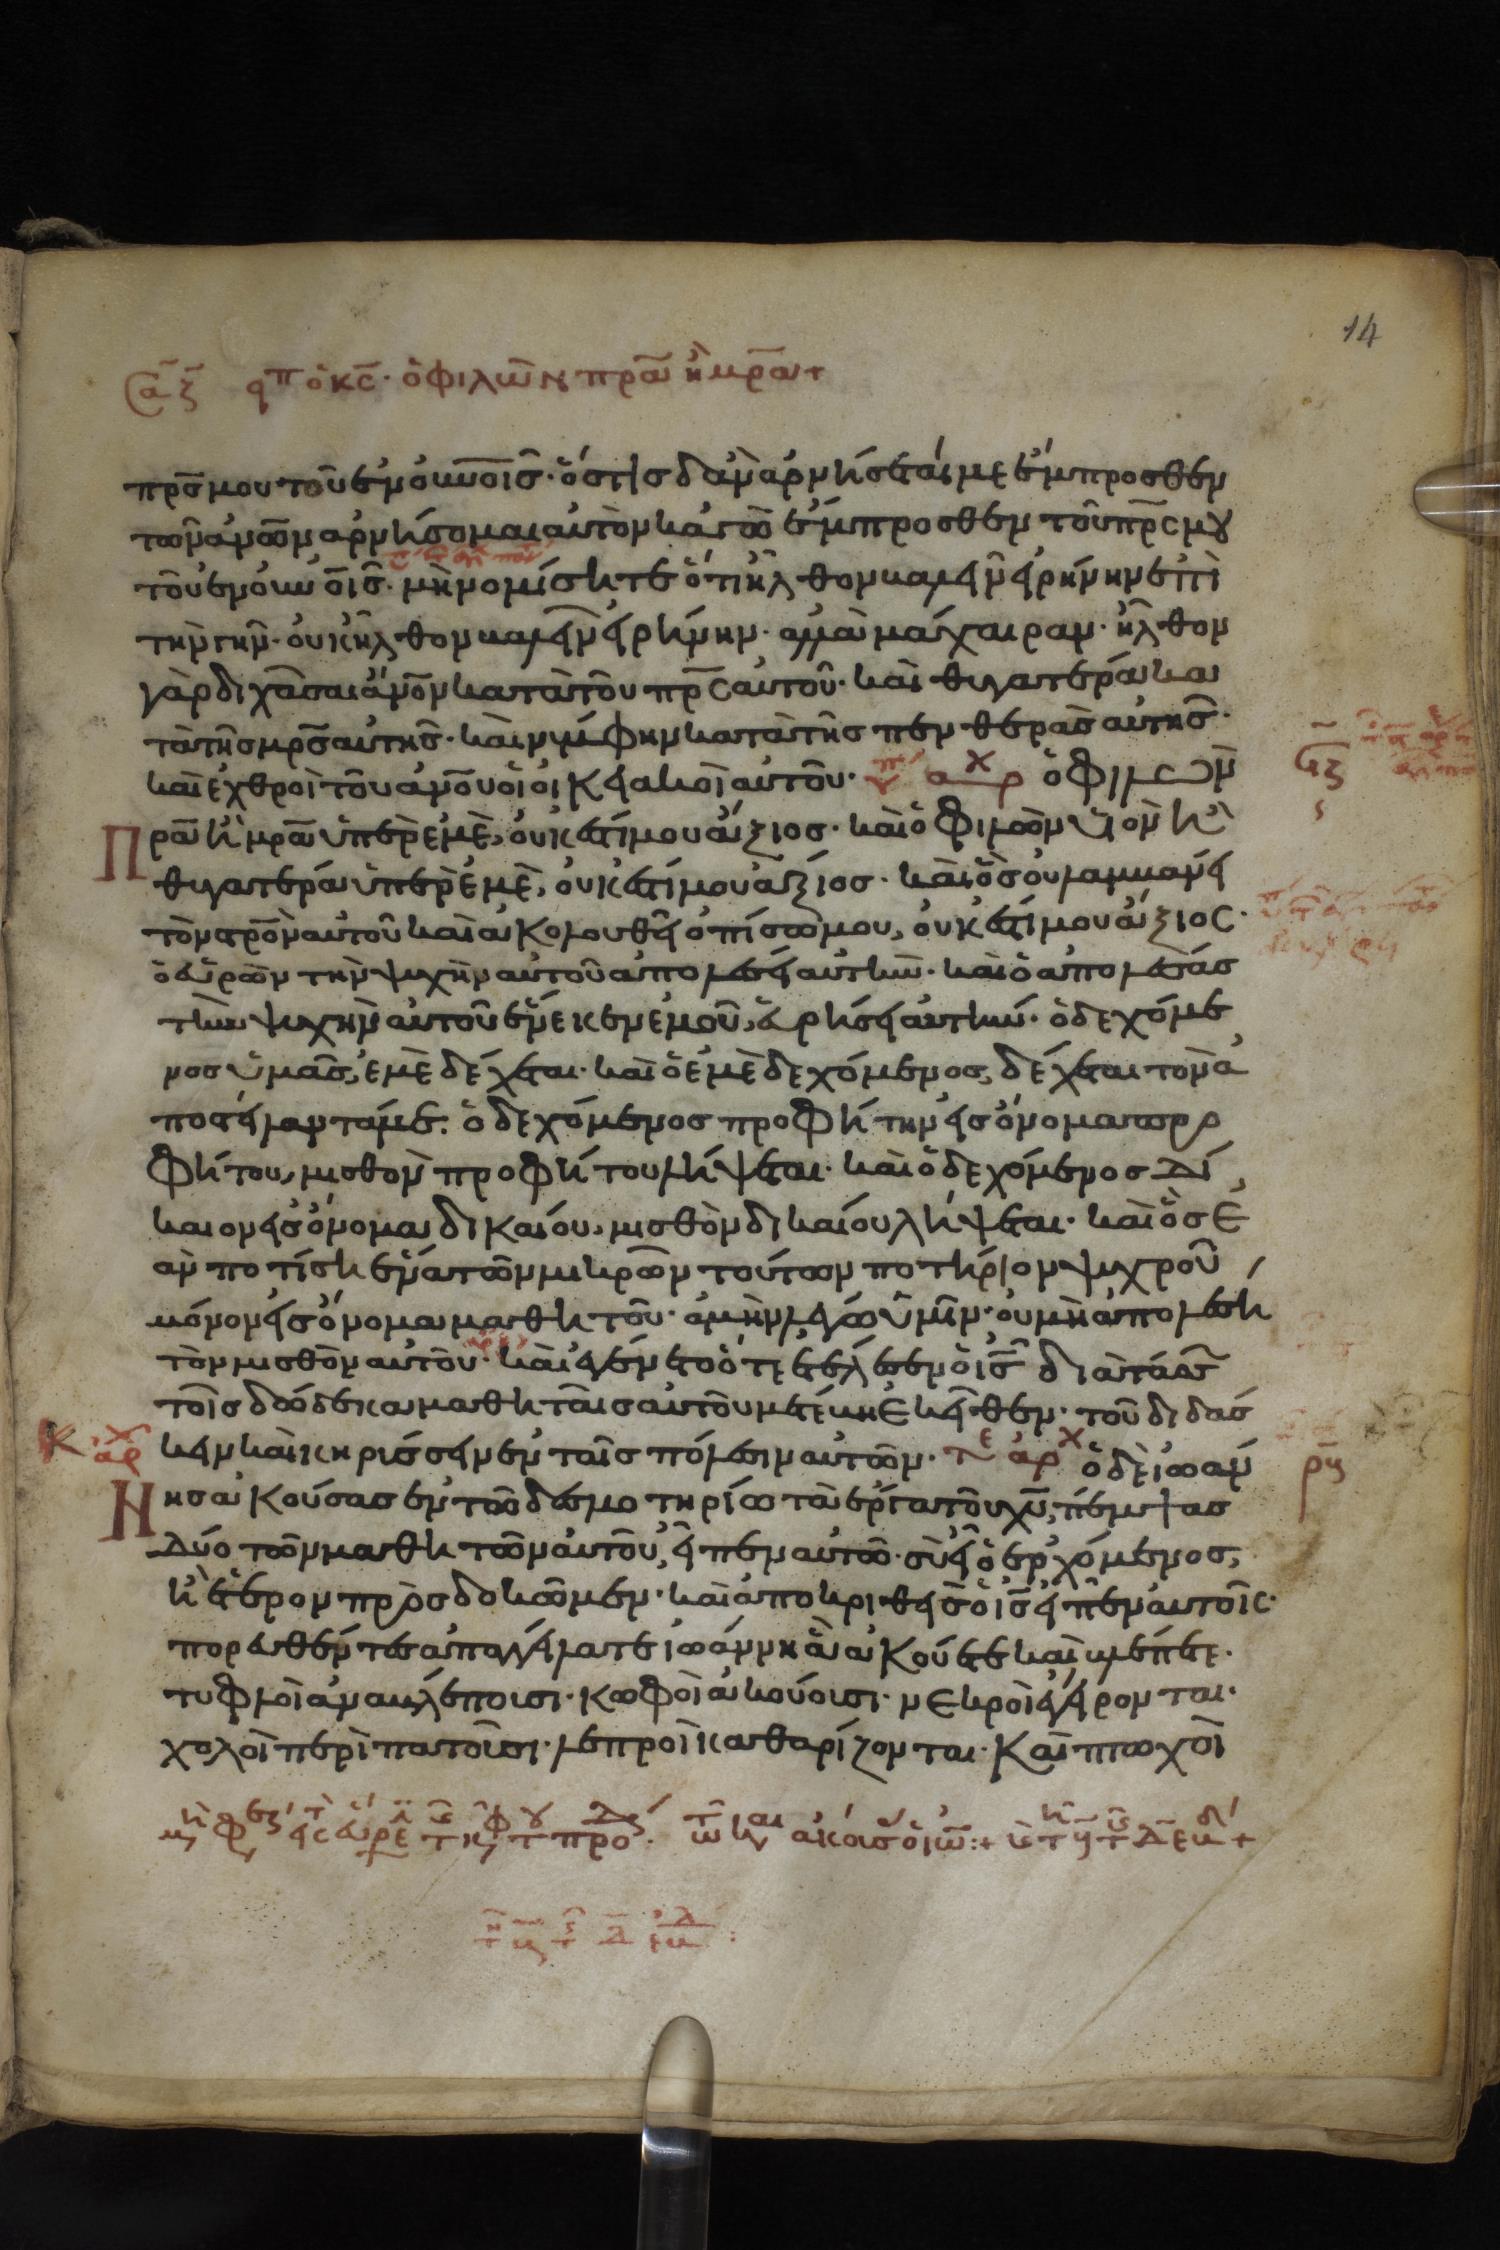 14
ὁ κς̄· ὁ φιλῶν πρ̄α ἢ μρ̄α +
πρ̄ς μου τοῦ ἐν οὐνοῖς· ὅστις δ' ἂν ἀρνήσεταί με ἔμπροσθεν
τῶν ἀνῶν ἀρνήσομαι αὐτὸν κἀγὼ ἔμπροσθεν τοῦ πρ̄ς μου
τοῦ ἐν οὐνοῖς· μὴ νομίσητε ὅτι ἦλθον βαλεῖν εἰρήνην ἐπὶ
τὴν γῆν· οὐκ ἦλθον βαλεῖν εἰρήνην· ἀλλὰ μάχαιραν· ἦλθον
γὰρ διχᾶσαι ἄνον κατὰ τοῦ πρ̄ς αὐτοῦ· καὶ θυγατέρα κα
τὰ τῆς μρ̄ς αὐτῆς· καὶ νύμφην κατὰ τῆς πενθερᾶς αὐτῆς·
καὶ ἐχθροὶ τοῦ ἀνου οἱ οἰκειακοὶ αὐτοῦ· ὁ φιλῶν
πρ̄α ἢ μρ̄α ὑπὲρ ἐμὲ, οὐκ ἔστι μου ἄξιος· καὶ ὁ φιλῶν υἱὸν ἢ
θυγατέρα ὑπὲρ ἐμὲ, οὐκ ἔστι μου ἄξιος· καὶ ὃς οὐ λαμβάνει
τὸν στρ̄ον αὐτοῦ καὶ ἀκολουθεῖ ὀπίσω μου, οὐκ ἔστι μου ἄξιος·
ὁ εὑρὼν τὴν ψυχὴν αὐτοῦ ἀπολέσει αὐτὴν· καὶ ὁ ἀπολέσας
τὴν ψυχὴν αὐτοῦ ἕνεκεν ἐμοῦ, εὑρήσει αὐτὴν· ὁ δεχόμε
νος ὑμᾶς, ἐμὲ δέχεται· καὶ ὁ ἐμὲ δεχόμενος, δέχεται τὸν ἀ
ποστείλαντά με· ὁ δεχόμενος προφήτην εἰς ὄνομα προ
φήτου, μισθὸν προφήτου λήψεται· καὶ ὁ δεχόμενος δί
καιον εἰς ὄνομα δικαίου, μισθὸν δικαίου λήψεται· καὶ ὃς ἐ
ὰν ποτίσῃ ἕνα τῶν μικρῶν τούτων ποτήριον ψυχροῦ
μόνον εἰς ὄνομα μαθητοῦ· ἀμὴν λέγω ὑμῖν· οὐ μὴ ἀπολέσῃ
τὸν μισθὸν αὐτοῦ· καὶ ἐγένετο ὅτε ἐτέλεσεν ὁ ις̄ διατάσς
τοῖς δώδεκα μαθηταῖς αὐτοῦ μετέβη ἐκεῖθεν· τοῦ διδάσ
κειν καὶ κηρύσσειν ἐν ταῖς πόλεσιν αὐτῶν· ὁ δὲ ἰωάν
νης ἀκούσας ἐν τῷ δεσμοτηρίω τὰ ἔργα τοῦ χῦ, πέμψας
δύο τῶν μαθητῶν αὐτοῦ, εἶπεν αὐτῷ· σὺ εἶ ὁ ἐρχόμενος,
ἢ ἕτερον προσδοκῶμεν· καὶ ἀποκριθεὶς ὁ ις̄ εἶπεν αὐτοῖς·
πορευθέντες ἀπαγγείλατε ἰωάννη ἃ ἀκούετε καὶ βλέπετε·
τυφλοὶ ἀναβλέπουσι· κωφοὶ ἀκούουσι· νεκροὶ ἐγείρονται·
χολοὶ περιπατοῦσι· λεπροὶ καθαρίζονται· καὶ πτωχοὶ